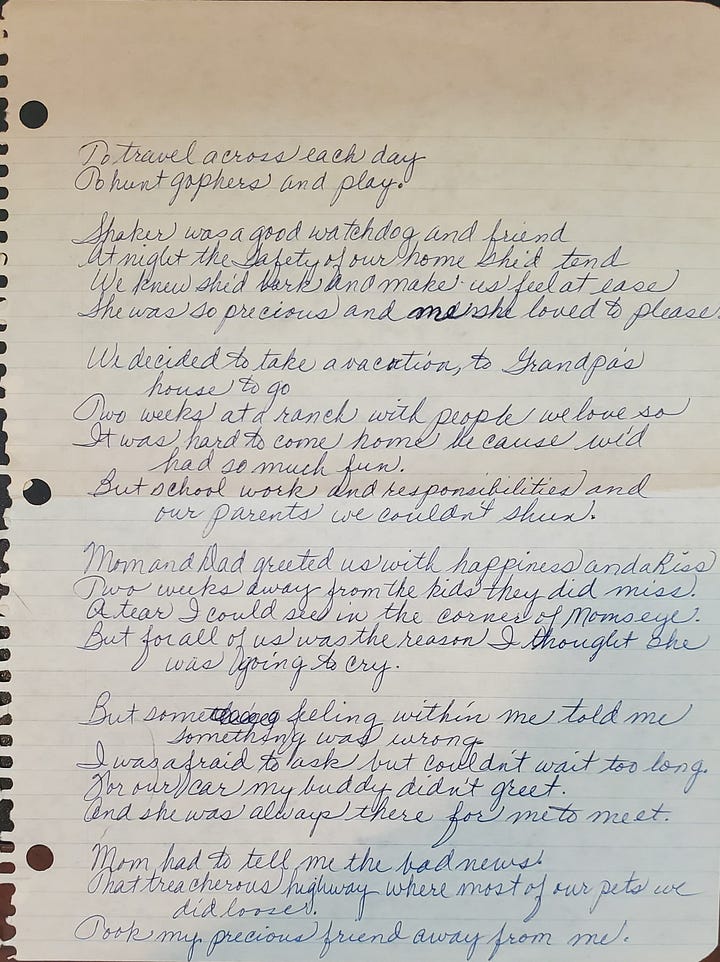 To travel across each day
To hunt gophers and play.
Shaker was a good watchdog and friend
At night the safety of our home she'd tend
We knew she'd bark and make us feel at ease
She was so precious and she loved to please.
We decided to take a vacation, to Grandpa's
house to go
Two weeks at a ranch with people we love so
It was hard to come home because we'd
had so much fun.
But school work and responsibilities and
our parents we couldn't shun.
Mom and Dad greeted us with happiness and a kiss
Two weeks away from the kids they did miss.
A tear I could see in the corner of Moms eye.
But for all of us was the reason I thought she
was going to cry.
But some feeling within me told me
something was wrong.
I was afraid to ask but couldn't wait too long.
For our car my buddy didn't greet.
And she was always there for me to meet.
Mom had to tell me the bad news.
That treacherous highway where most of our pets we
did loose.
Took my precious friend away from me.